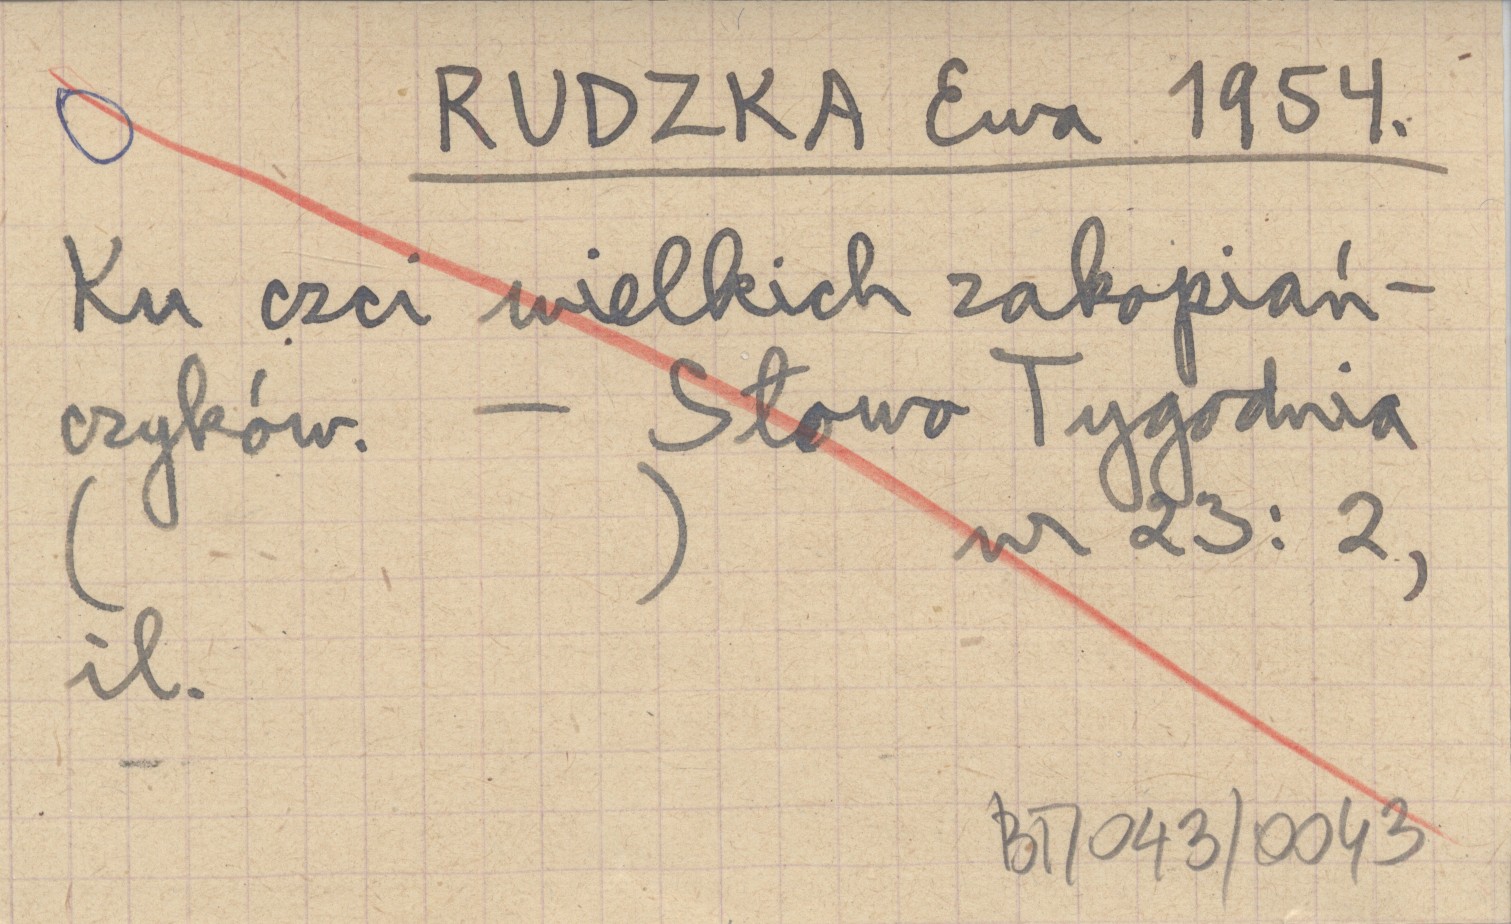 RUDZKA Ewa 1954.
Ku czci wielkich zakopiań-
czyków. — Słowo Tygodnia
( ) nr 23: 2,
il.
BT/043/0043